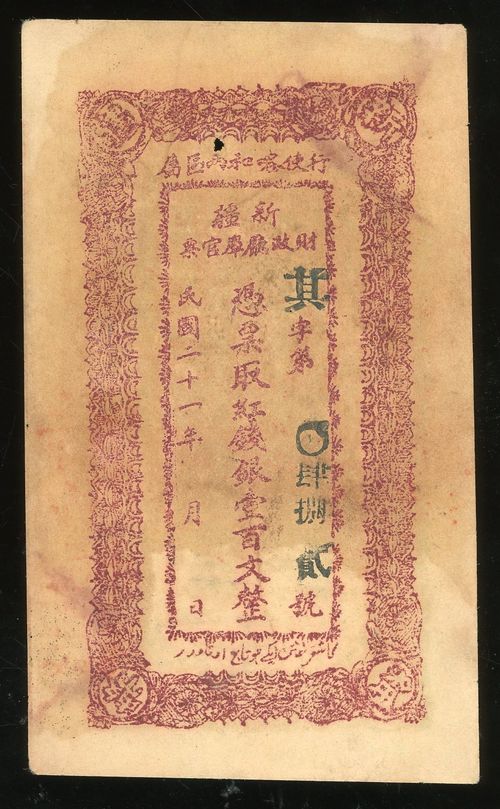 行使喀和两區爲
新疆
財政廳庫官票
其字第〇肆捌貳號
憑票取紅錢銀壹百文整
民國二十一年 月 日